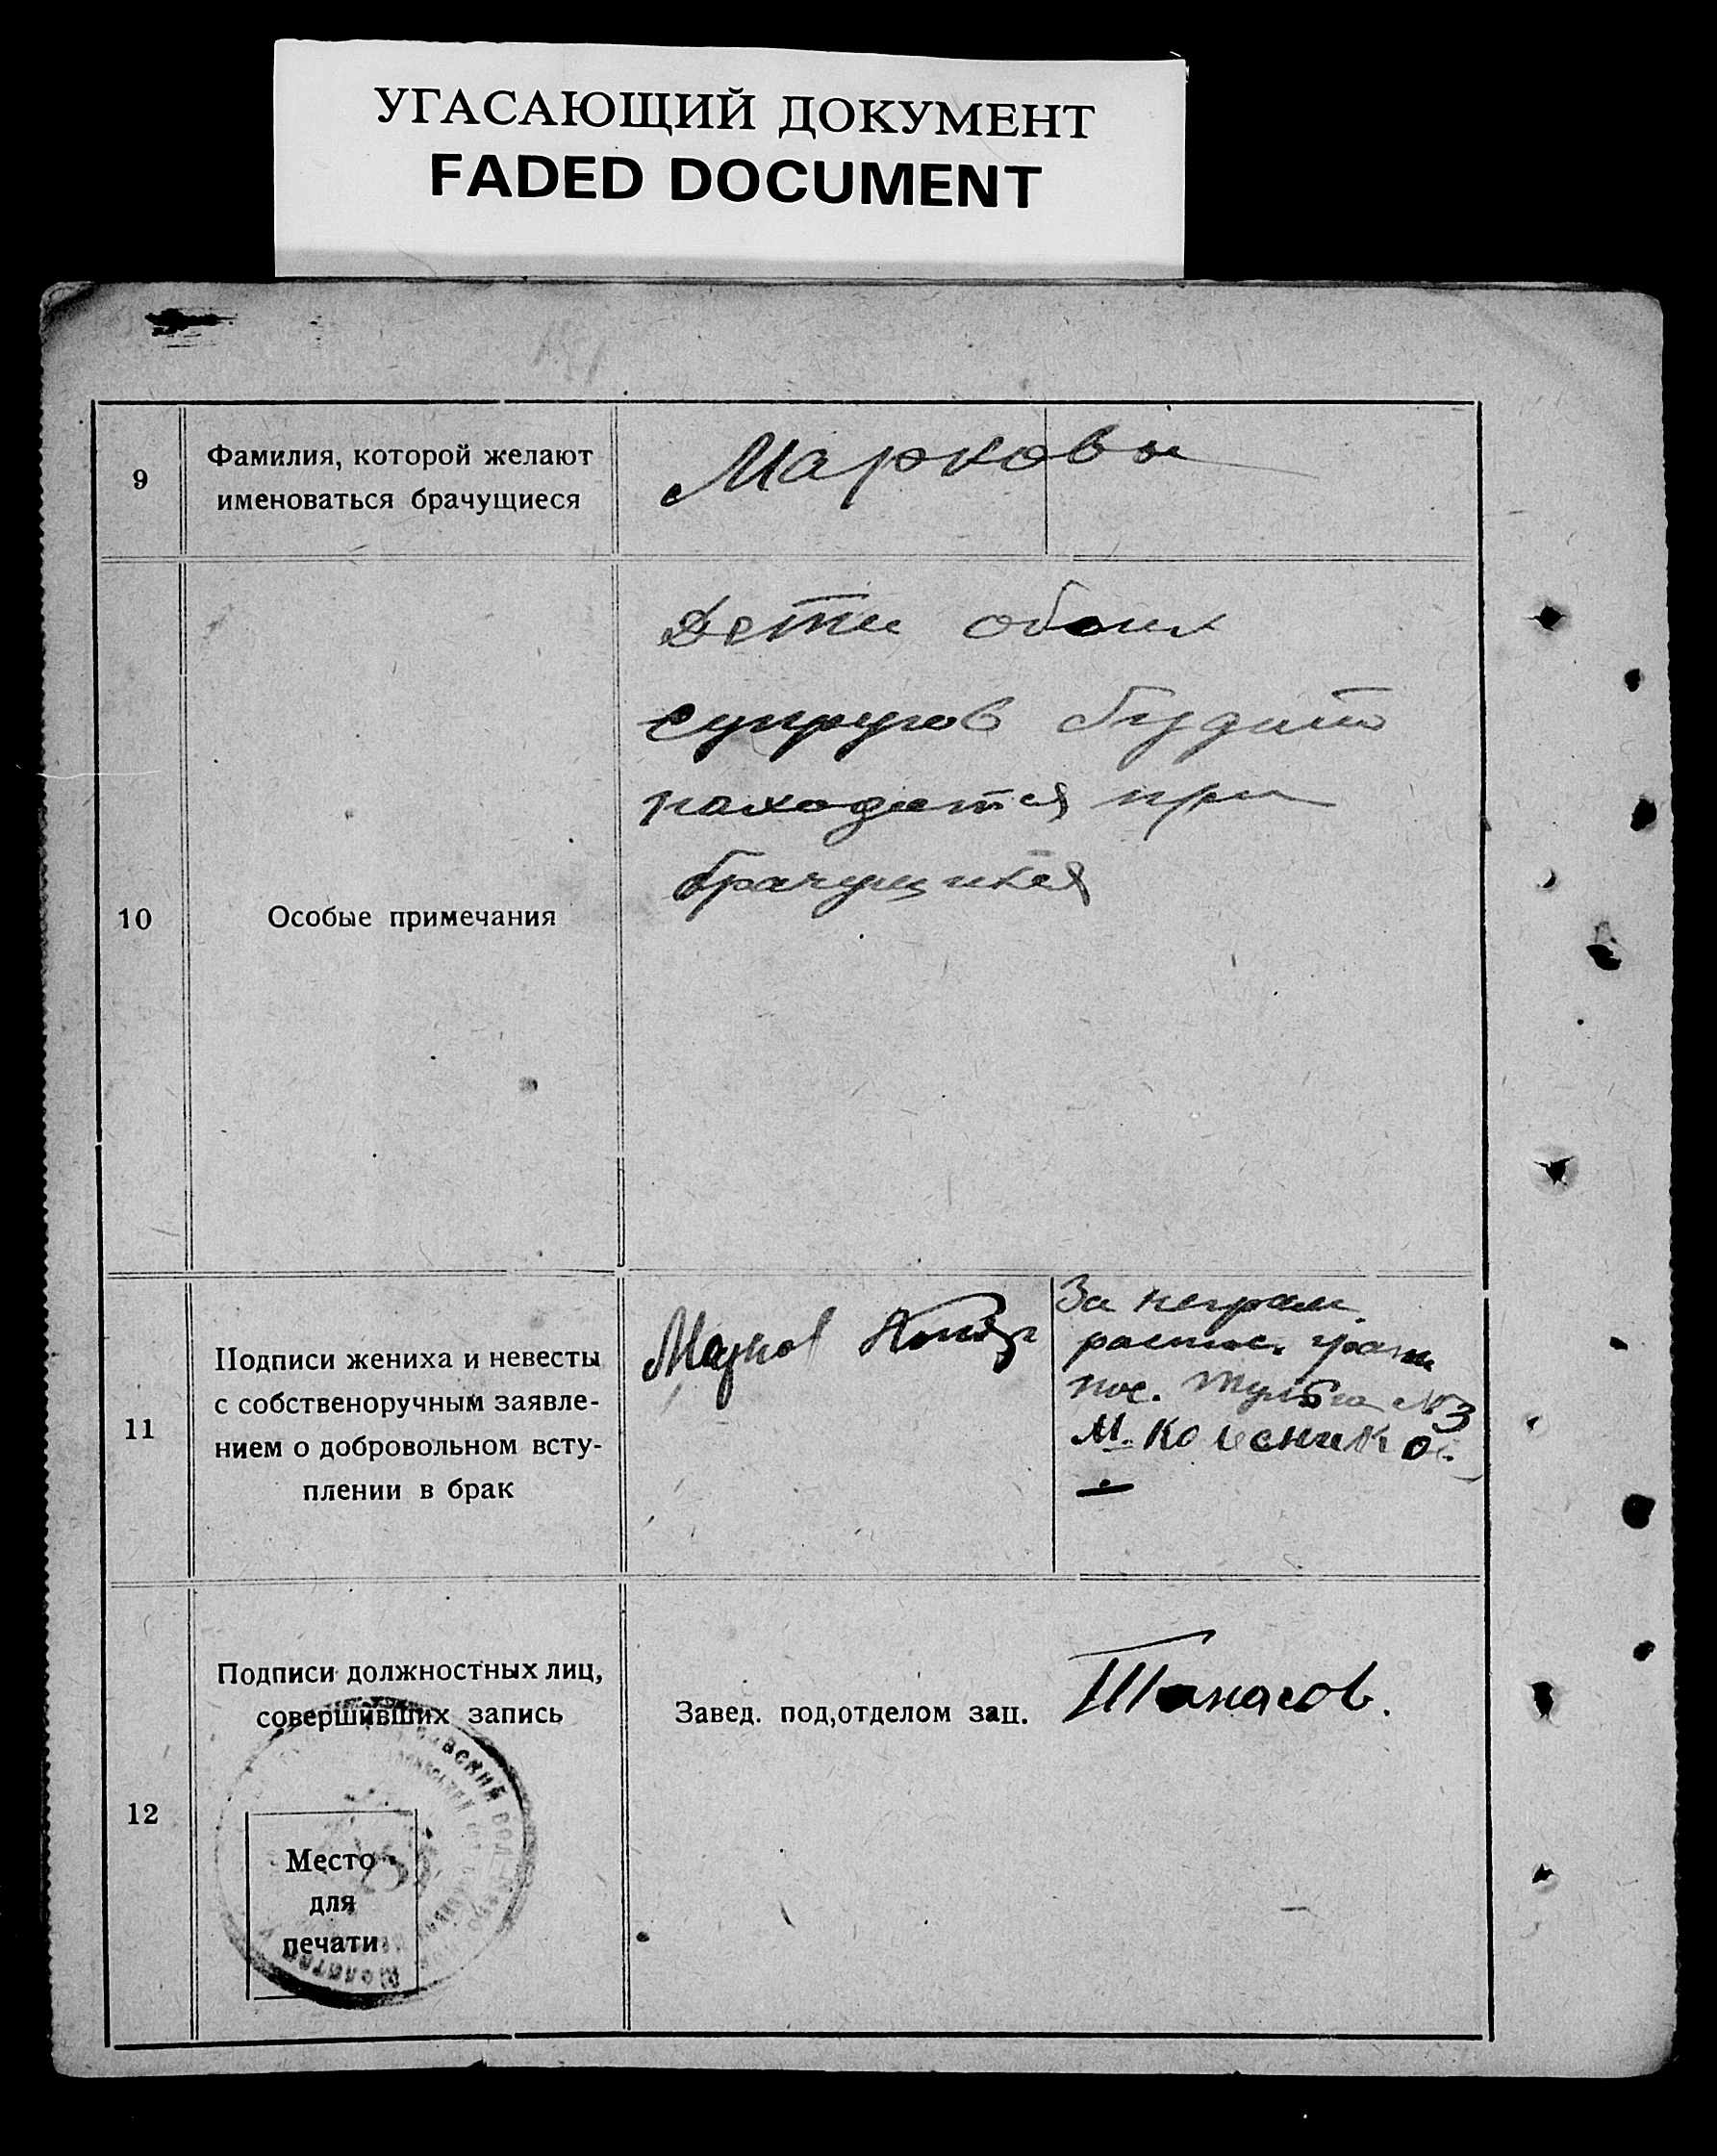 УГАСАЮЩИЙ ДОКУМЕНТ
FADED DOCUMENT
9
Фамилия, которой желают
именоваться брачущиеся
Марковы
10
Особые примечания
Дети обоих
супругов будит
находится при
брачущихся
11
Подписи жениха и невесты
с собственоручным заявле-
нием о добровольном всту-
плении в брак
Марков
За неграм.
распис.
пос. №3
М. Колесников.
12
Подписи должностных лиц,
совершивших запись
Место
для
печати
Завед. под,отделом зац. Танасов.